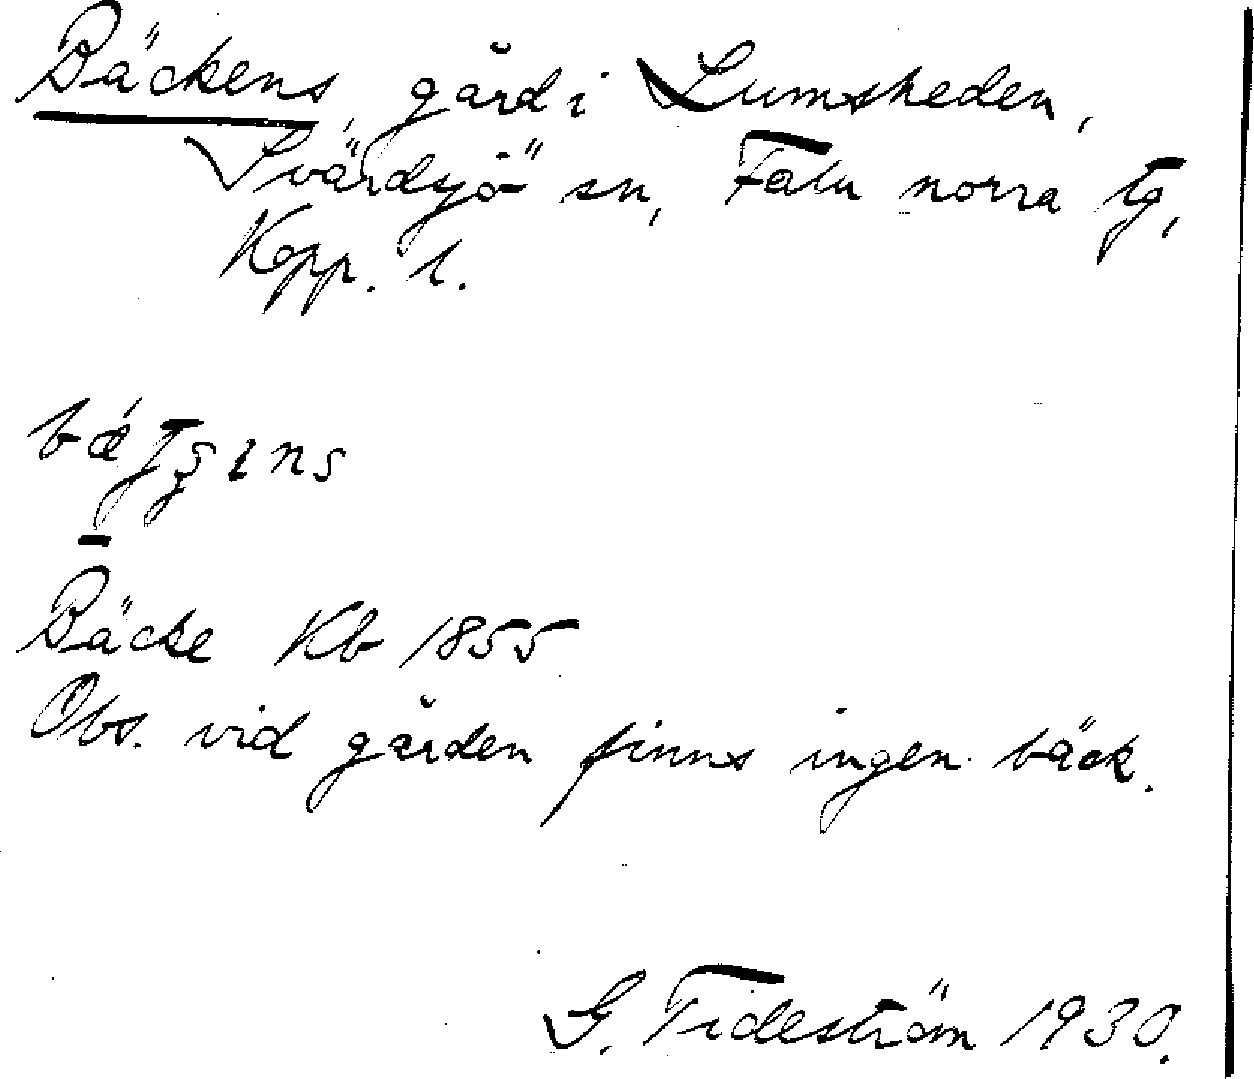 Bäckens, gård i Lumsheden,
Svärdsjö sn, Falu norra tg,
Kopp. l.
Bäcke Kb 1855
Obs. vid gården finns ingen bäck.
G. Tideström 1930.